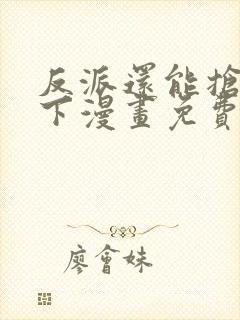 反派還能搶
下漫畫免費
廖會妹